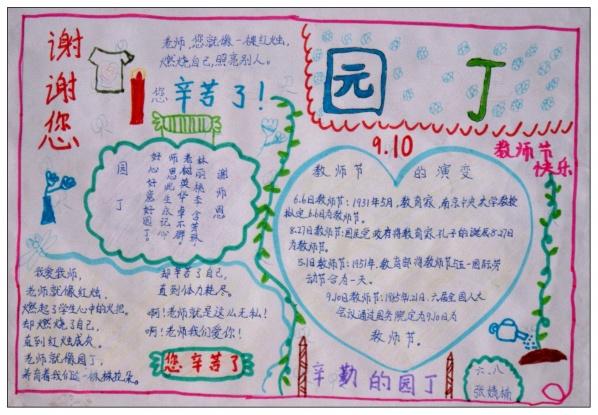 谢谢您
老师,您就像一根红烛,
燃烧自己,照亮别人。
您辛苦了!
园丁
9.10
教师节
快乐
谢师恩
园丁
教师节的演变
6.6日教师节:1931年5月,教育家,南京中央大学教授
拟定6.6日为教师节。
8.27日教师节:国民党政府将教育家孔子的诞辰8.27日
为教师节。
5.1日教师节:1951年,教育部将教师节与五一国际劳
动节合为一天。
9.10日教师节:1985年1.21日,六届全国人大
会议通过国务院定为9.10日为
教师节。
我爱教师,
老师就像红烛,
燃起了学生心中的火把。
却燃烧了自己,
直到红烛成灰。
老师就像园丁,
养育着我们这一株株花朵。
却辛苦了自己,
直到体力耗尽。
啊!老师就是这么无私!
啊!老师我们爱你!
您辛苦了
辛勤的园丁
六.八